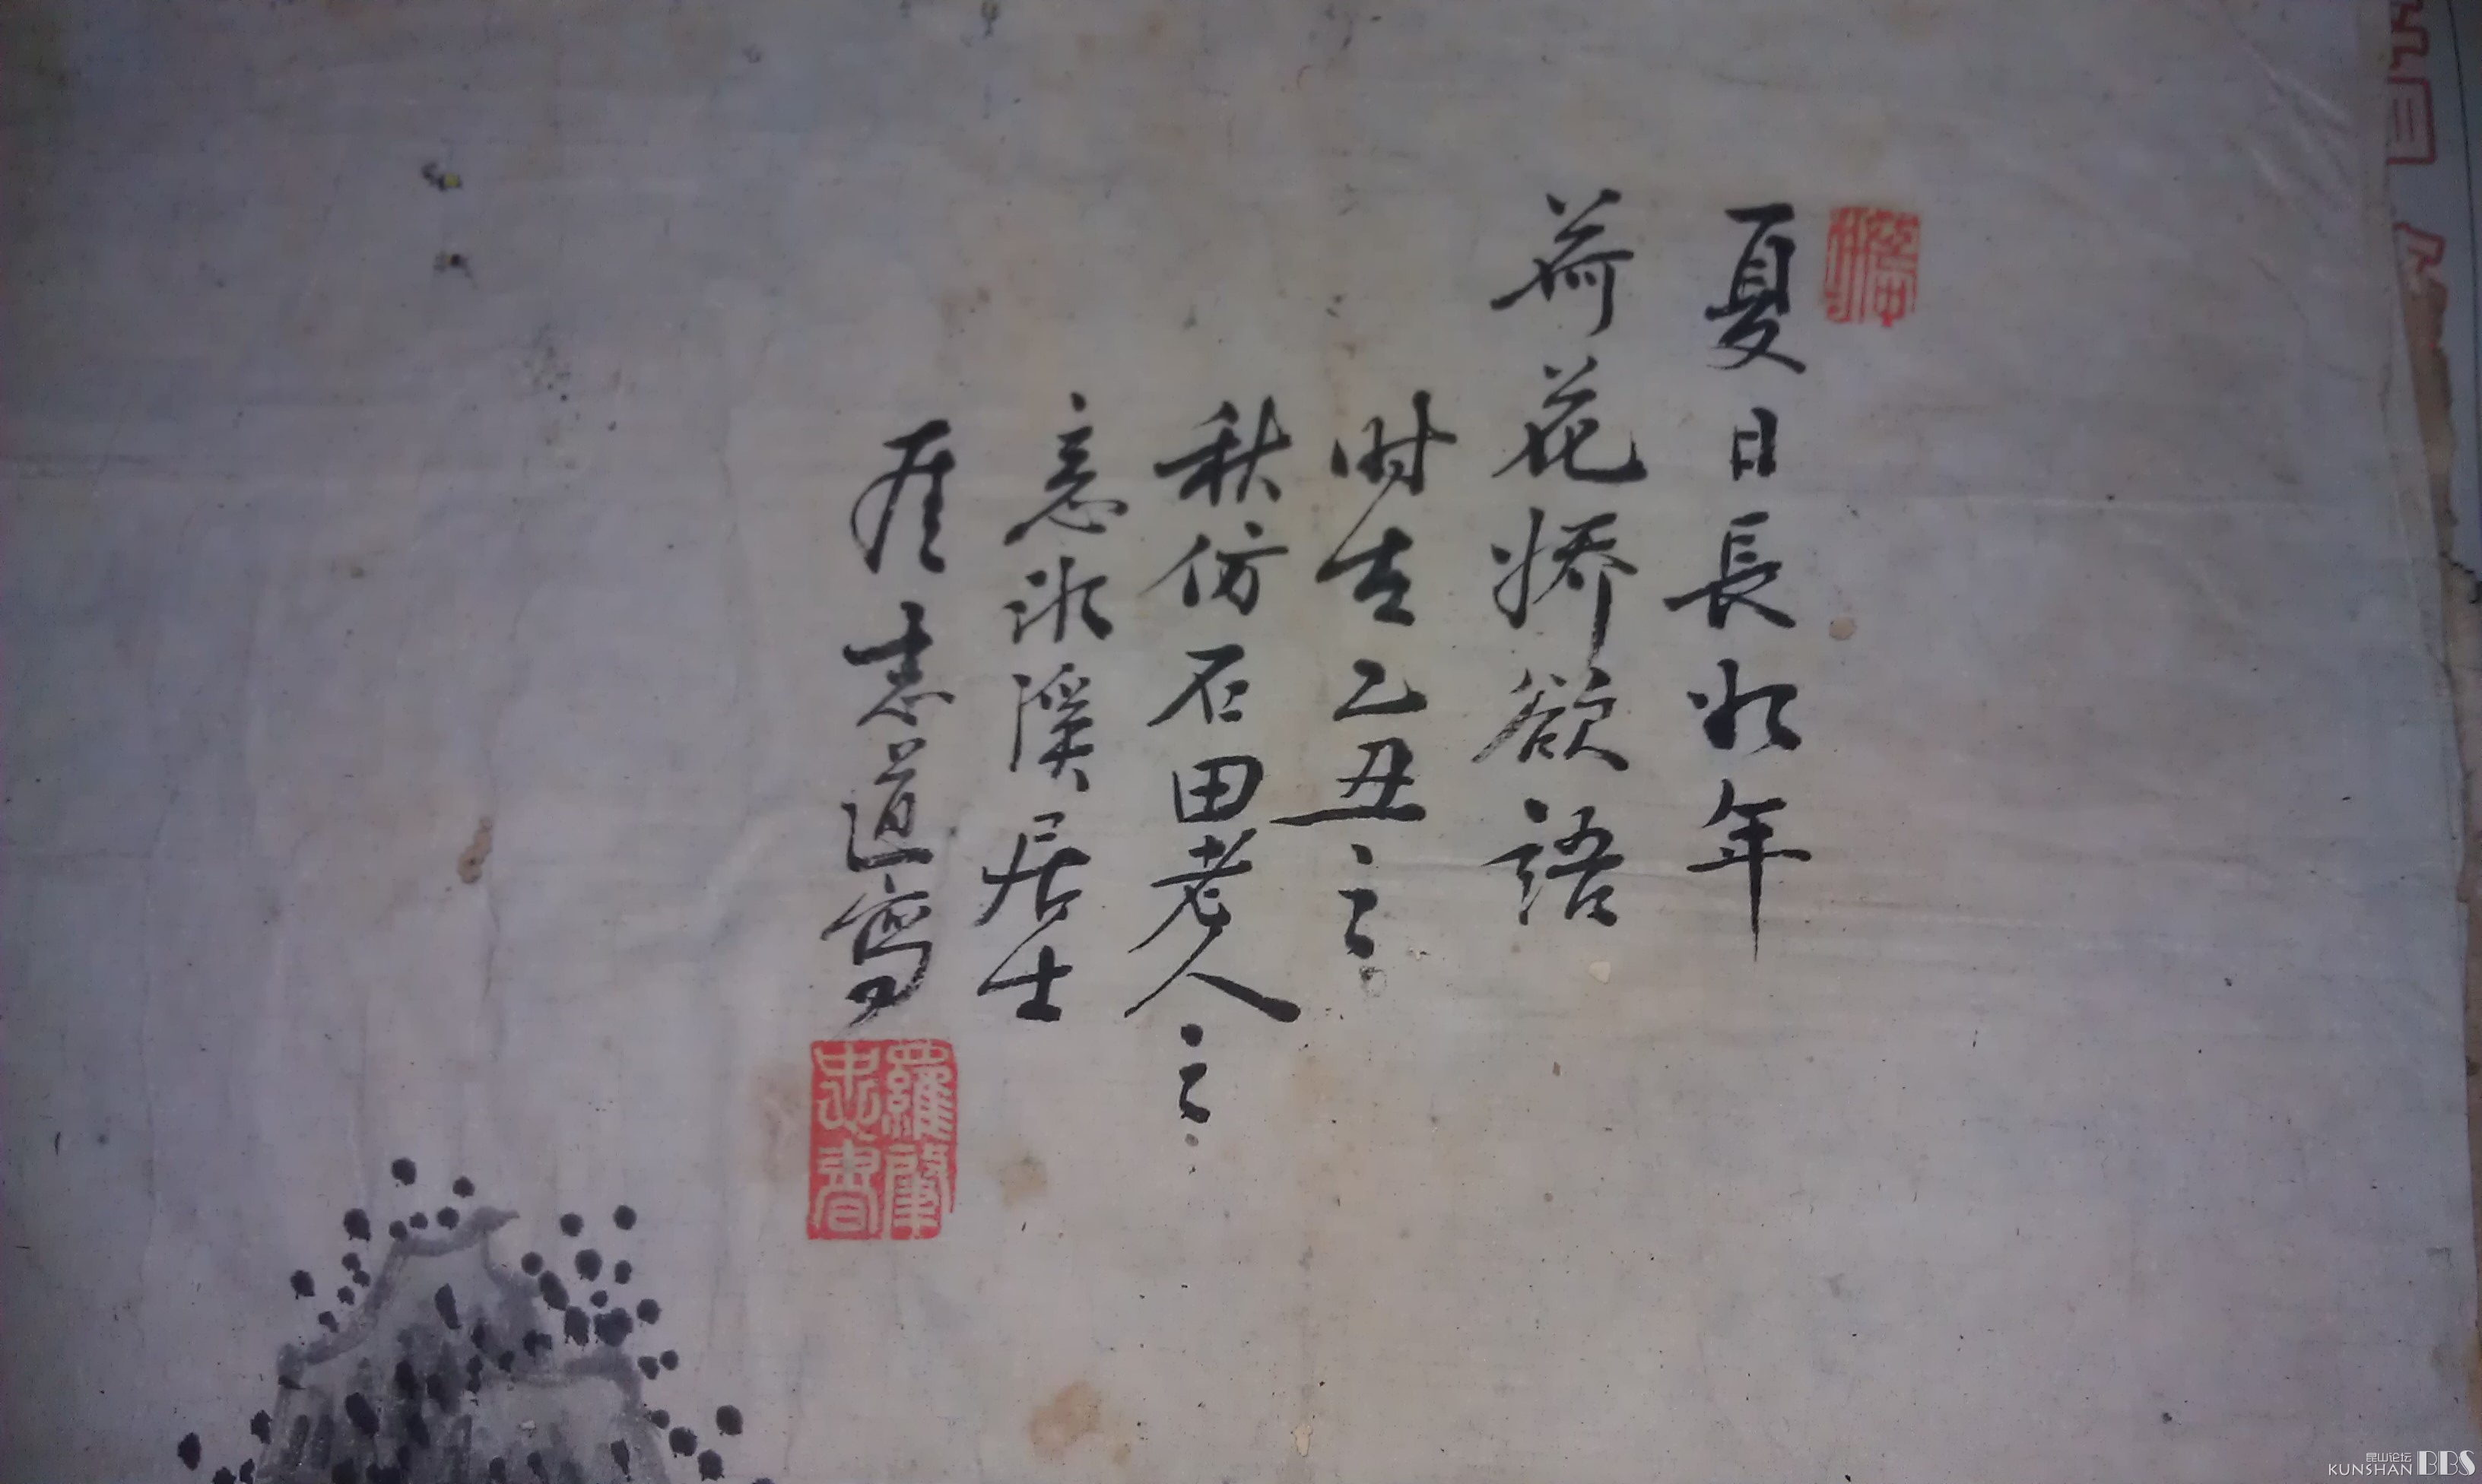 夏日長如年
荷花嬌欲語
时在乙丑之
秋仿石田老人之
意 溪居士
志道寫
羅肇
忠書
昆山论坛
KUNSHAN BBS